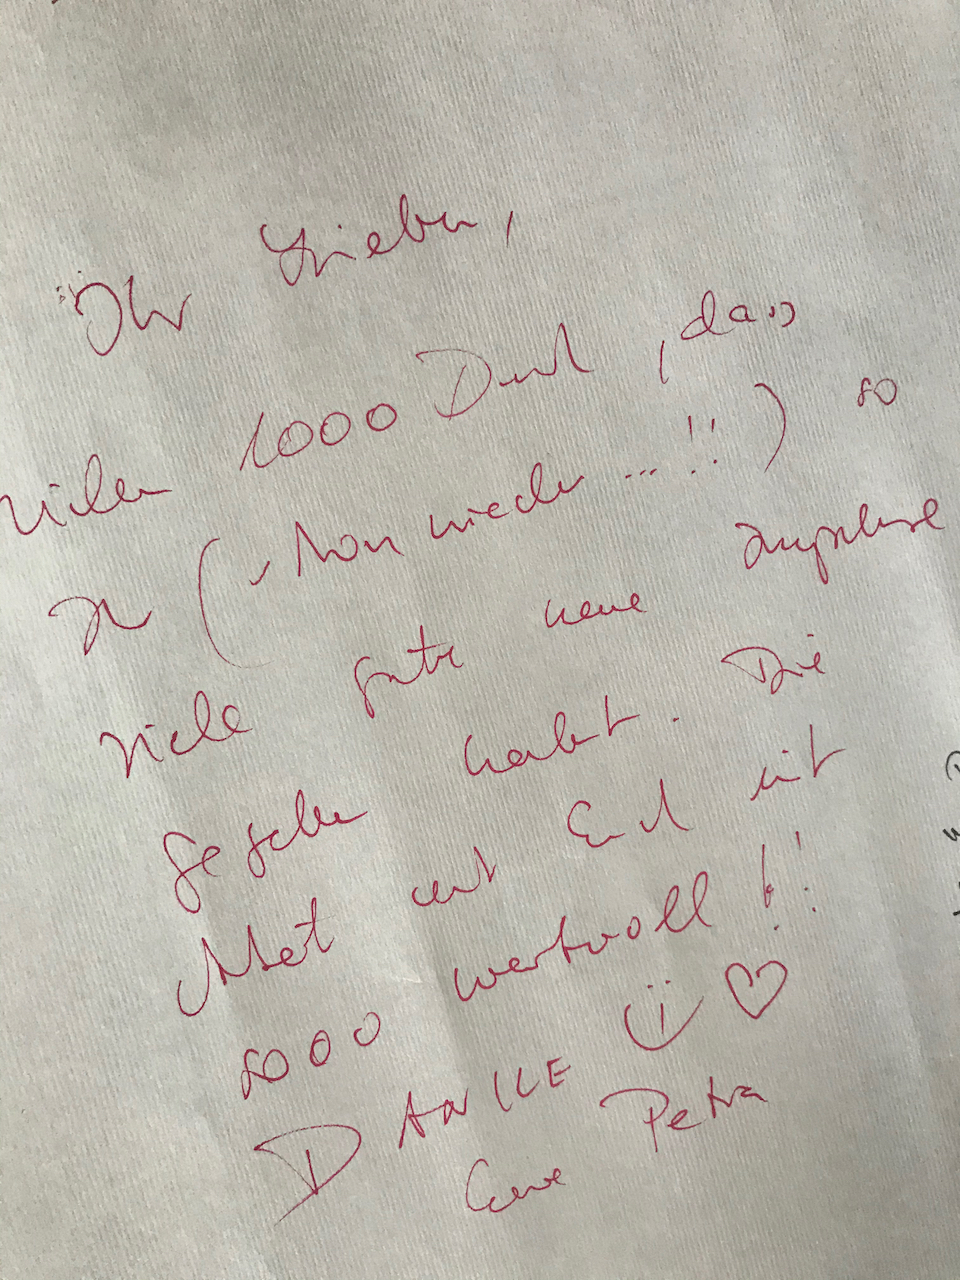 Ihr Lieben,
Vielen 1000 Dank, dass
(schon wieder...!!) so
viele gute neue Impulse
gegeben habt. Die
Arbeit mit Euch ist
sooo wertvoll!!
DANKE ü ♡
Eure Petra